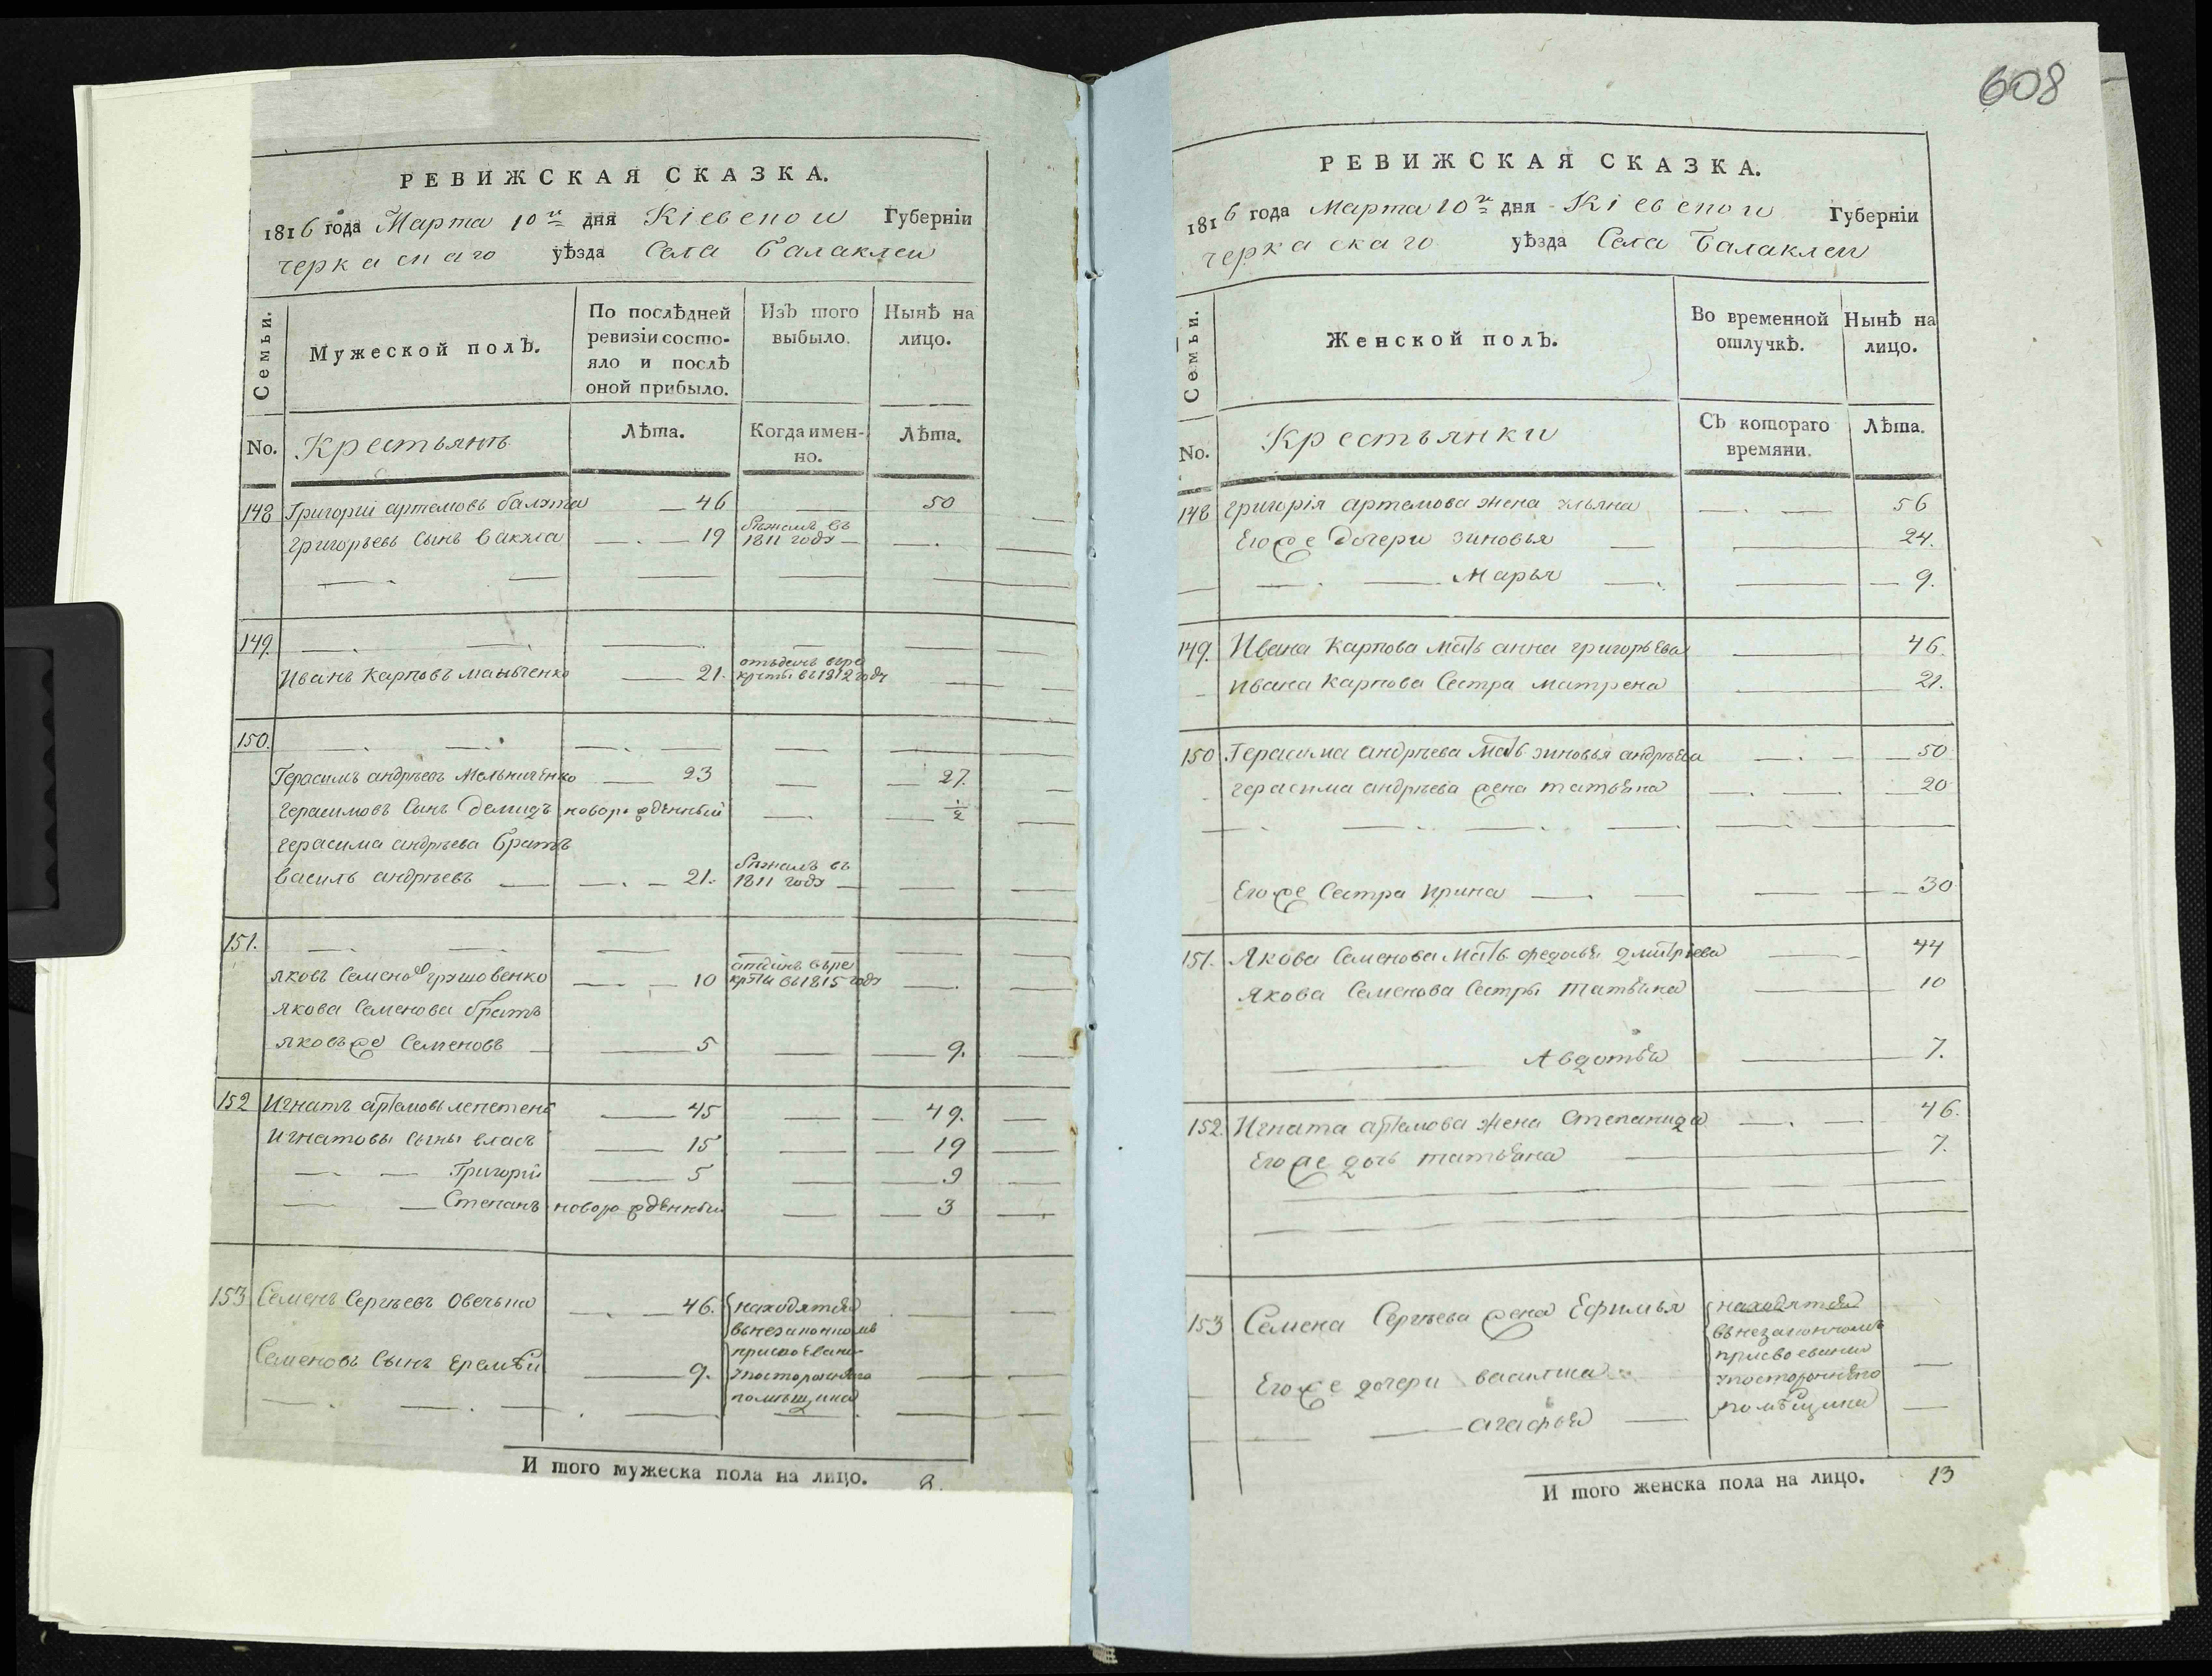 608
РЕВИЖСКАЯ СКАЗКА.
1816 года Марта 10го дня Кіевской Губерніи
черкаскаго уѣзда Села Балаклеи
Семьи.
Мужеской полъ.
По послѣдней ревизіи состо-
яло и послѣ
оной прибыло.
Изъ того
выбыло.
Нынѣ на
лицо.
No.
Крестьянъ
Лѣта.
Когда имен-
но.
Лѣта.
148 Григорій артемовъ 46 50
Григорьевъ сынъ Вакула 19 бѣжалъ въ
1811 году
149.
Иванъ Карповъ 21. отъданъ въре
круты въ 1812 году
150.
Герасимъ андрѣевъ Мельниченко 23 27.
Герасимовъ Сынъ Демидъ новорожденный ½
герасима андрѣева братъ
василь андрѣевъ 21. бѣжалъ въ
1811 году
151.
Яковъ Семенов 10 отданъ въре
круты въ 1815 году
Якова Семенова братъ
яковъ же Семеновъ 5 9.
152 Игнатъ артемовъ 45 49.
Игнатовы сыны власъ 15 19
Григорій 5 9
Степанъ новорожденный 3
153 Семенъ Сергѣевъ 46. находятся
внезаконномъ
Семеновъ Сынъ Еремѣй 9. присвоеваніи
упосторонняго
помѣщика
И того мужеска пола на лицо. 8.
РЕВИЖСКАЯ СКАЗКА.
1816 года Марта 10го дня Кіевской Губерніи
черкаскаго уѣзда Села Балаклеи
Семьи.
Женской полъ.
Во временной
отлучкѣ.
Нынѣ на
лицо.
No.
Крестьянки
Съ котораго
времяни.
Лѣта.
148 григорія артемова жена ульяна 56
Его же дочери зиновья 24.
Марья 9.
149. Ивана Карпова мать анна григорьева 46.
Ивана Карпова Сестра матрена 21.
150 Герасима андрѣева мать зиновья андрѣева 50
герасима андрѣева жена татьяна 20
Его же Сестра ирина 30
151. Якова Семенова мать федосья дмитріева 44
Якова Семенова Сестры татьяна 10
Авдотья 7.
152. Игната артемова жена Степанида 46.
Его же дочь татьяна 7.
153 Семена Сергѣева жена Ефимья находятся
внезаконномъ
присвоеваніи
Его же дочери василиса упосторонняго
помѣщика
агафья
И того женска пола на лицо. 13